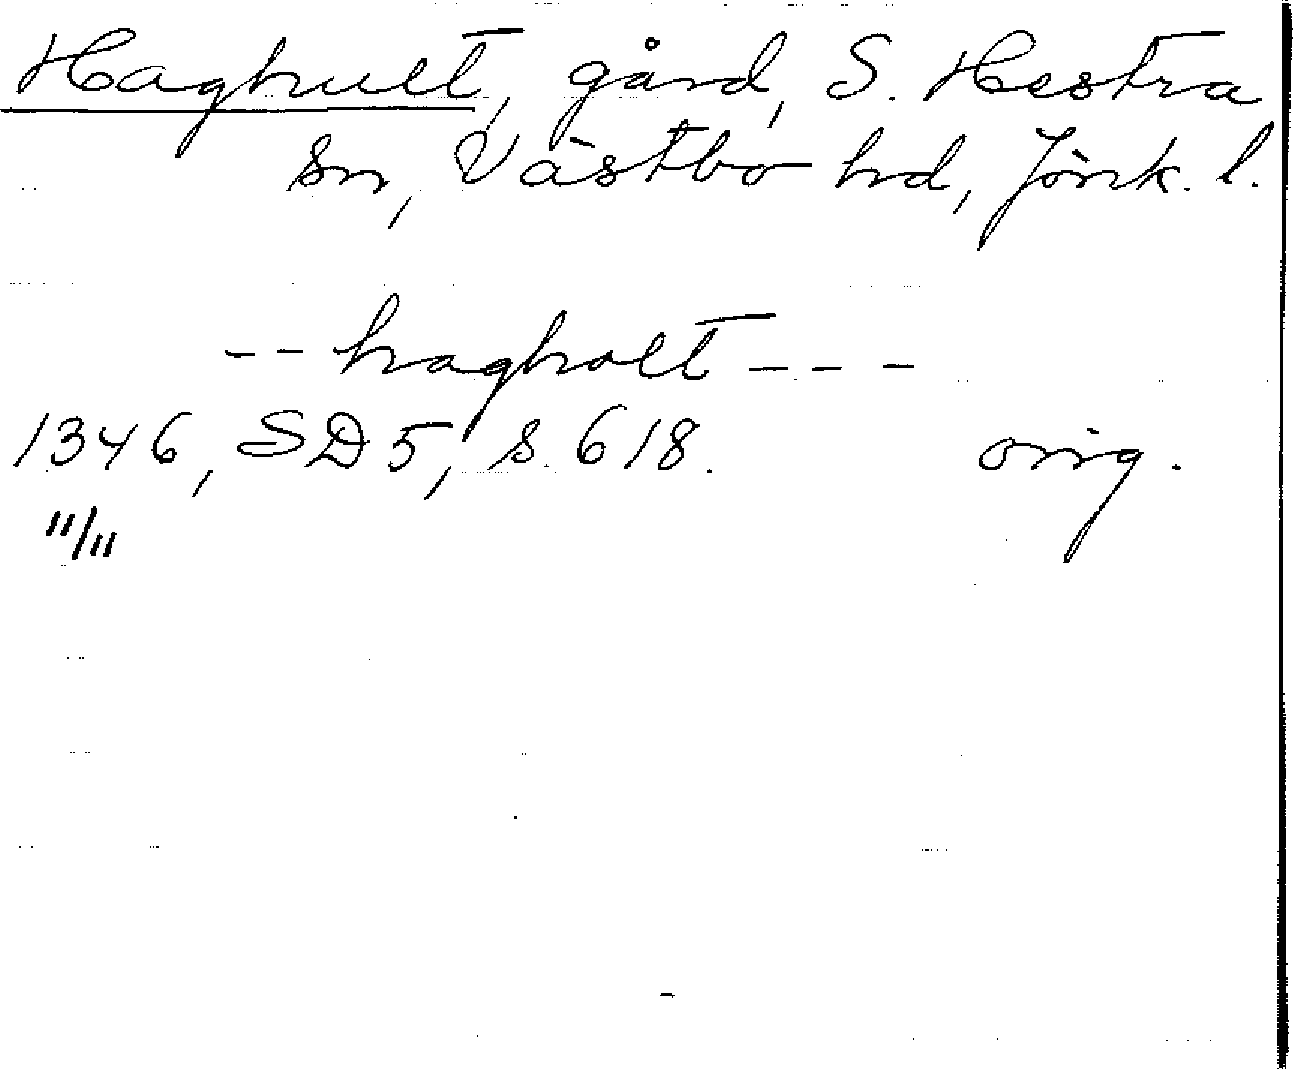 Haghult, gård, S. Hestra
sn, Västbo hd, Jönk. l.
-- hagholt ---
1346, SD 5, s. 618. orig.
11/11